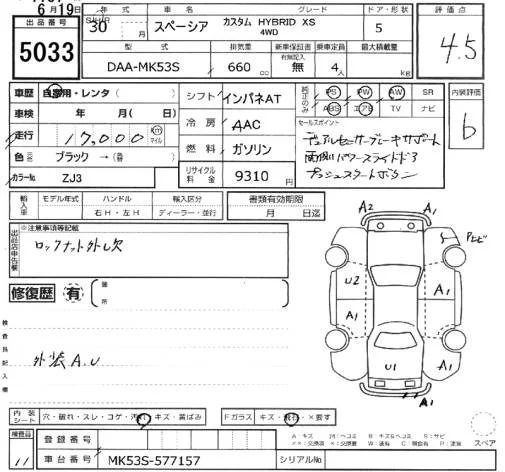 6月19日
出品番号
5033
年式
S/H/R
30 月
スペーシア
グレード
カスタム HYBRID XS
4WD
ドア・形状
5
評価点
4.5
型式
DAA-MK53S
排気量
660 cc
新車保証書
有無記入
無
乗車定員
4人
最大積載量
kg
車歴 自家用・レンタ( )
車検 年 月(日)
走行 17,000 Km マイル
色 ブラック →(替)
カラーNo. ZJ3
シフト インパネAT
冷房 AAC
燃料 ガソリン
リサイクル料金 9310 円
純正のみ
PS PW AW SR
ABS エアB TV ナビ
セールスポイント
デュアルセンサーブレーキサポート
両側パワースライドドア
プッシュスタートボタン
内装評価
b
輸入車
モデル年式
ハンドル
右H・左H
輸入区分
ディーラー・並行
書類有効期限
月 日迄
出品店申告欄
※注意事項等記載
ロックナット外し欠
修復歴 有
箇所
検査員記入欄
外装A.U
A2 A1
U2 A1
A1 A1
U1
A1
スペア
内装シート
穴・破れ・スレ・コゲ・汚れ・キズ・黄ばみ
Fガラス キズ・飛石・×要す
検査員
11
登録番号
車台番号 MK53S-577157
シリアルNo